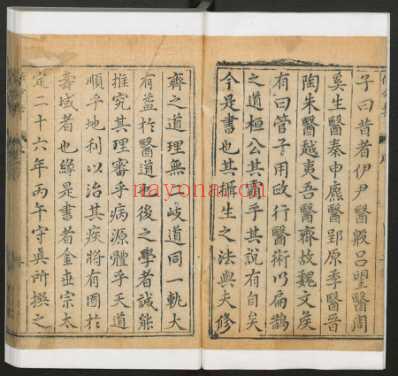 子曰昔者伊尹醫殷呂望醫周
奚生醫秦申麃醫郢原季醫晉
陶朱醫越夷吾醫齊故魏文矦
有曰管子用政行醫術以扁鵲
之道桓公其霸乎其說有自矣
今是書也其攝生之法與夫修
齊之道理無二岐道同一軌大
有益於醫道也後之學者誠能
推究其理審乎病源體乎天道
順乎地利以治其疾將有囿於
壽域者也緣是書者金壺宗太
定二十六年丙午守真所撰之
nayona.cn